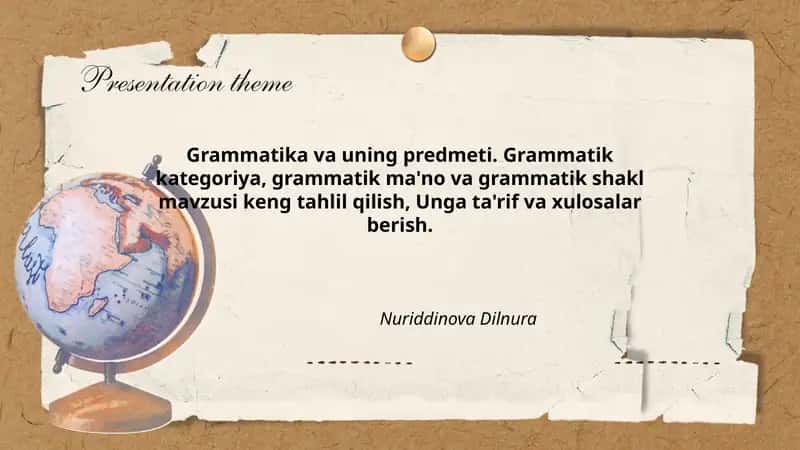 Presentation theme
Grammatika va uning predmeti. Grammatik
kategoriya, grammatik ma'no va grammatik shakl
mavzusi keng tahlil qilish, Unga ta'rif va xulosalar
berish.
Nuriddinova Dilnura